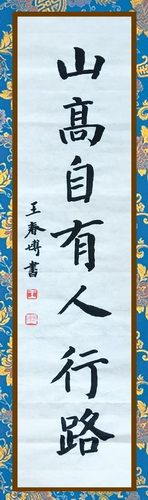 山髙自有人行路
王春博書